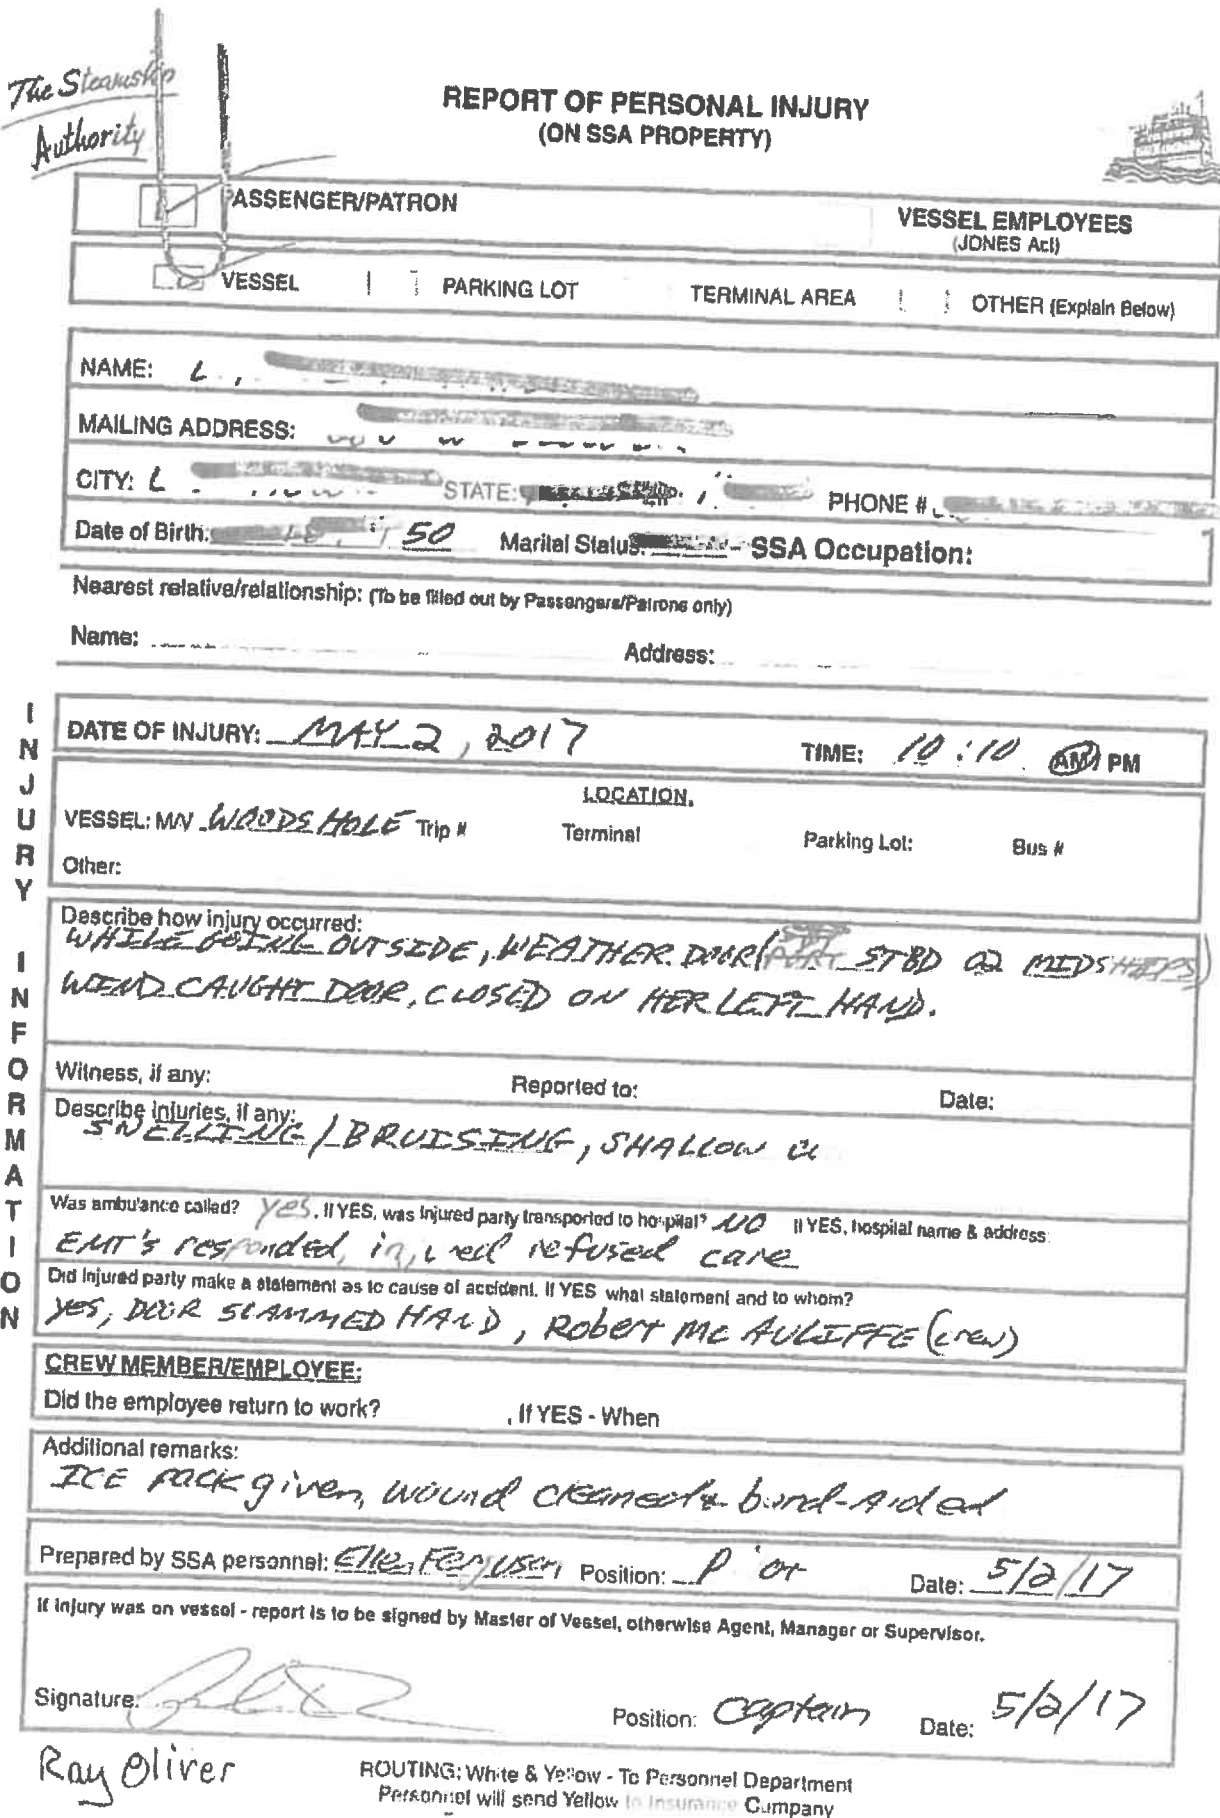 The Steamship
Authority
REPORT OF PERSONAL INJURY
(ON SSA PROPERTY)
PASSENGER/PATRON
VESSEL EMPLOYEES
(JONES Act)
VESSEL PARKING LOT TERMINAL AREA OTHER (Explain Below)
NAME: L
MAILING ADDRESS:
CITY: L STATE: PHONE #
Date of Birth: 50 Marital Status: SSA Occupation:
Nearest relative/relationship: (To be filled out by Passengers/Patrons only)
Name: Address:
INJURY INFORMATION
DATE OF INJURY: MAY 2, 2017 TIME: 10:10 AM PM
LOCATION.
VESSEL: M/V WOODS HOLE Trip # Terminal Parking Lot: Bus #
Other:
Describe how injury occurred:
WHILE GOING OUTSIDE, WEATHER DOOR( STBD 02 MIDSHIPS)
WIND CAUGHT DOOR, CLOSED ON HER LEFT HAND.
Witness, if any: Reported to: Date:
Describe injuries, if any:
SWELLING/BRUISING, SHALLOW
Was ambulance called? yes. If YES, was injured party transported to hospital? NO If YES, hospital name & address:
EMT's responded, injured refused care
Did injured party make a statement as to cause of accident. If YES what statement and to whom?
yes, DOOR SLAMMED HAND, Robert McAULIFFE (crew)
CREW MEMBER/EMPLOYEE:
Did the employee return to work? , If YES - When
Additional remarks:
ICE pack given, wound cleaned & band-Aided
Prepared by SSA personnel: Ellen Ferguson Position: Date: 5/2/17
If injury was on vessel - report is to be signed by Master of Vessel, otherwise Agent, Manager or Supervisor.
Signature: Position: Captain Date: 5/2/17
Ray Oliver
ROUTING: White & Yellow - To Personnel Department
Personnel will send Yellow to Insurance Company